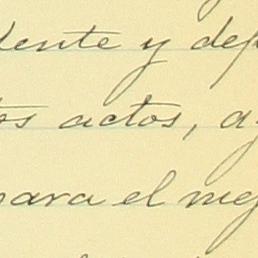 dente y dep
tos actos, a
para el mej